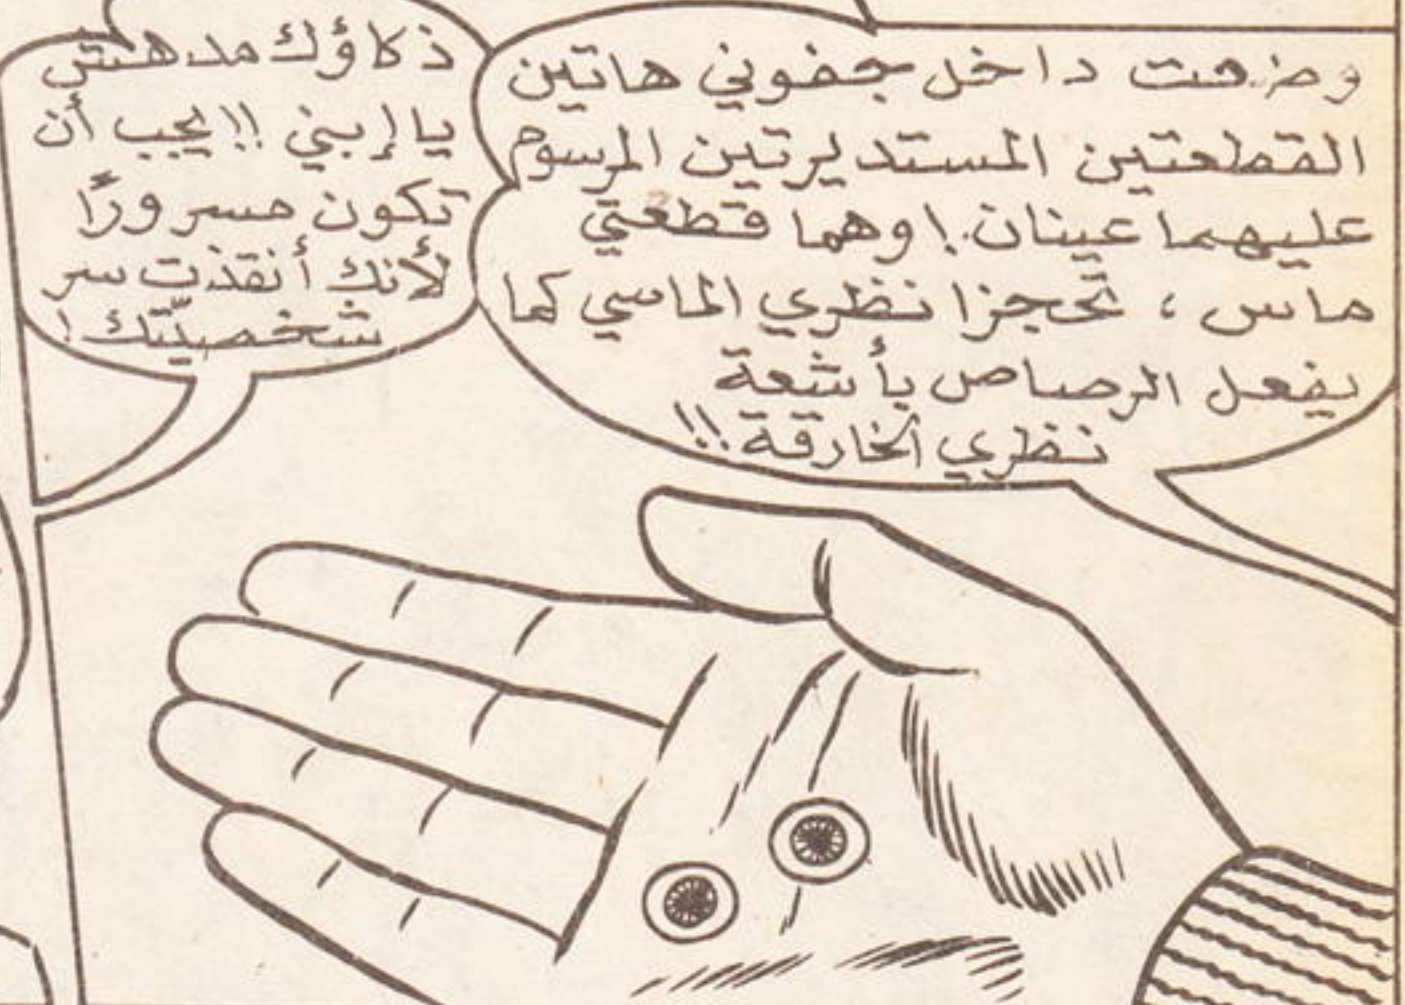 وضعت داخل جفوني هاتين
القطعتين المستديرتين المرسوم
عليهما عينان.! وهما قطعتي
ماس ، تحجزا نظري الماسي كما
يفعل الرصاص بأشعة
نظري الخارقة!!
ذكاؤك مدهش
يا إبني !! يجب أن
تكون مسرورًا
لأنك أنقذت سر
شخصيّتك!